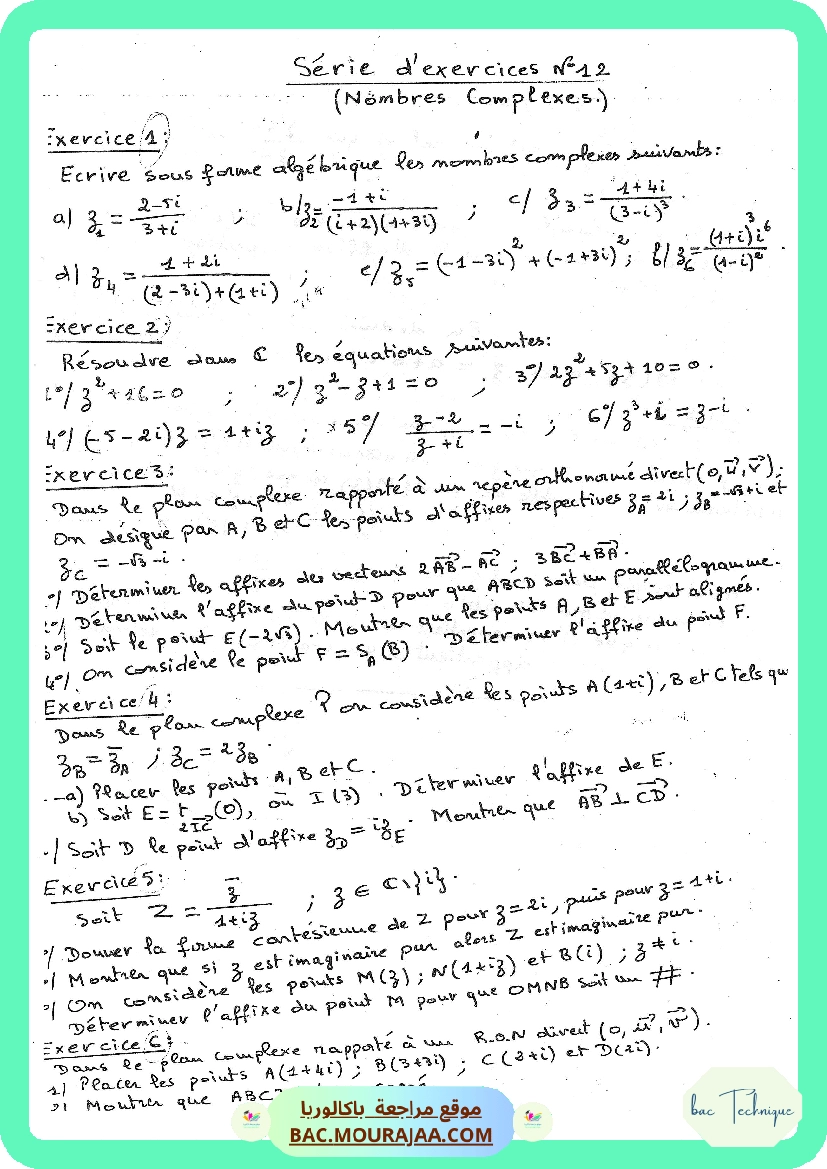 Série d'exercices N°12
(Nombres Complexes.)
Exercice 1:
Ecrire sous forme algébrique les nombres complexes suivants:
a) z₁ = (2-5i)/(3+i) ; b/ z₂ = (-1+i)/((i+2)(1+3i)) ; c/ z₃ = (1+4i)/(3-i)³ .
d) z₄ = (1+2i)/((2-3i)+(1+i)) ; e/ z₅ = (-1-3i)² + (-1+3i)² ; f/ z₆ = (1+i)³i⁶/(1-i)² .
Exercice 2:
Résoudre dans ℂ les équations suivantes:
1°/ z²+16=0 ; 2°/ z²-z+1=0 ; 3°/ 2z²+5z+10=0 .
4°/ (-5-2i)z = 1+iz ; 5°/ (z-2)/(z+i) = -i ; 6°/ z³+i = z-i .
Exercice 3:
Dans le plan complexe rapporté à un repère orthonormé direct (o, u⃗, v⃗);
On désigne par A, B et C les points d'affixes respectives z_A=2i ; z_B=-√3+i et
z_C = -√3-i .
°/ Déterminer les affixes des vecteurs 2AB⃗ - AC⃗ ; 3BC⃗ + BA⃗ .
°/ Déterminer l'affixe du point D pour que ABCD soit un parallélogramme.
3°/ Soit le point E(-2√3). Montrer que les points A, B et E sont alignés.
4°/ On considère le point F = S_A(B) . Déterminer l'affixe du point F.
Exercice 4:
Dans le plan complexe P on considère les points A(1+i), B et C tels qu
z_B = z̄_A ; z_C = 2z_B .
-a) Placer les points A, B et C.
b) Soit E = t_2IC⃗ (O), où I(3) . Déterminer l'affixe de E.
·/ Soit D le point d'affixe z_D = iz_E . Montrer que AB⃗ ⊥ CD⃗ .
Exercice 5:
Soit Z = z̄/(1+iz) ; z ∈ ℂ\{i}.
°/ Donner la forme cartésienne de Z pour z=2i, puis pour z=1+i.
°/ Montrer que si z est imaginaire pur alors Z est imaginaire pur.
°/ On considère les points M(z) ; N(1+iz) et B(i) ; z≠i.
Déterminer l'affixe du point M pour que OMNB soit un #.
Exercice 6:
Dans le plan complexe rapporté à un R.O.N direct (o, u⃗, v⃗).
1) Placer les points A(1+4i) ; B(3+3i) ; C(2+i) et D(2i).
Montrer que
موقع مراجعة باكالوريا
BAC.MOURAJAA.COM
bac Technique